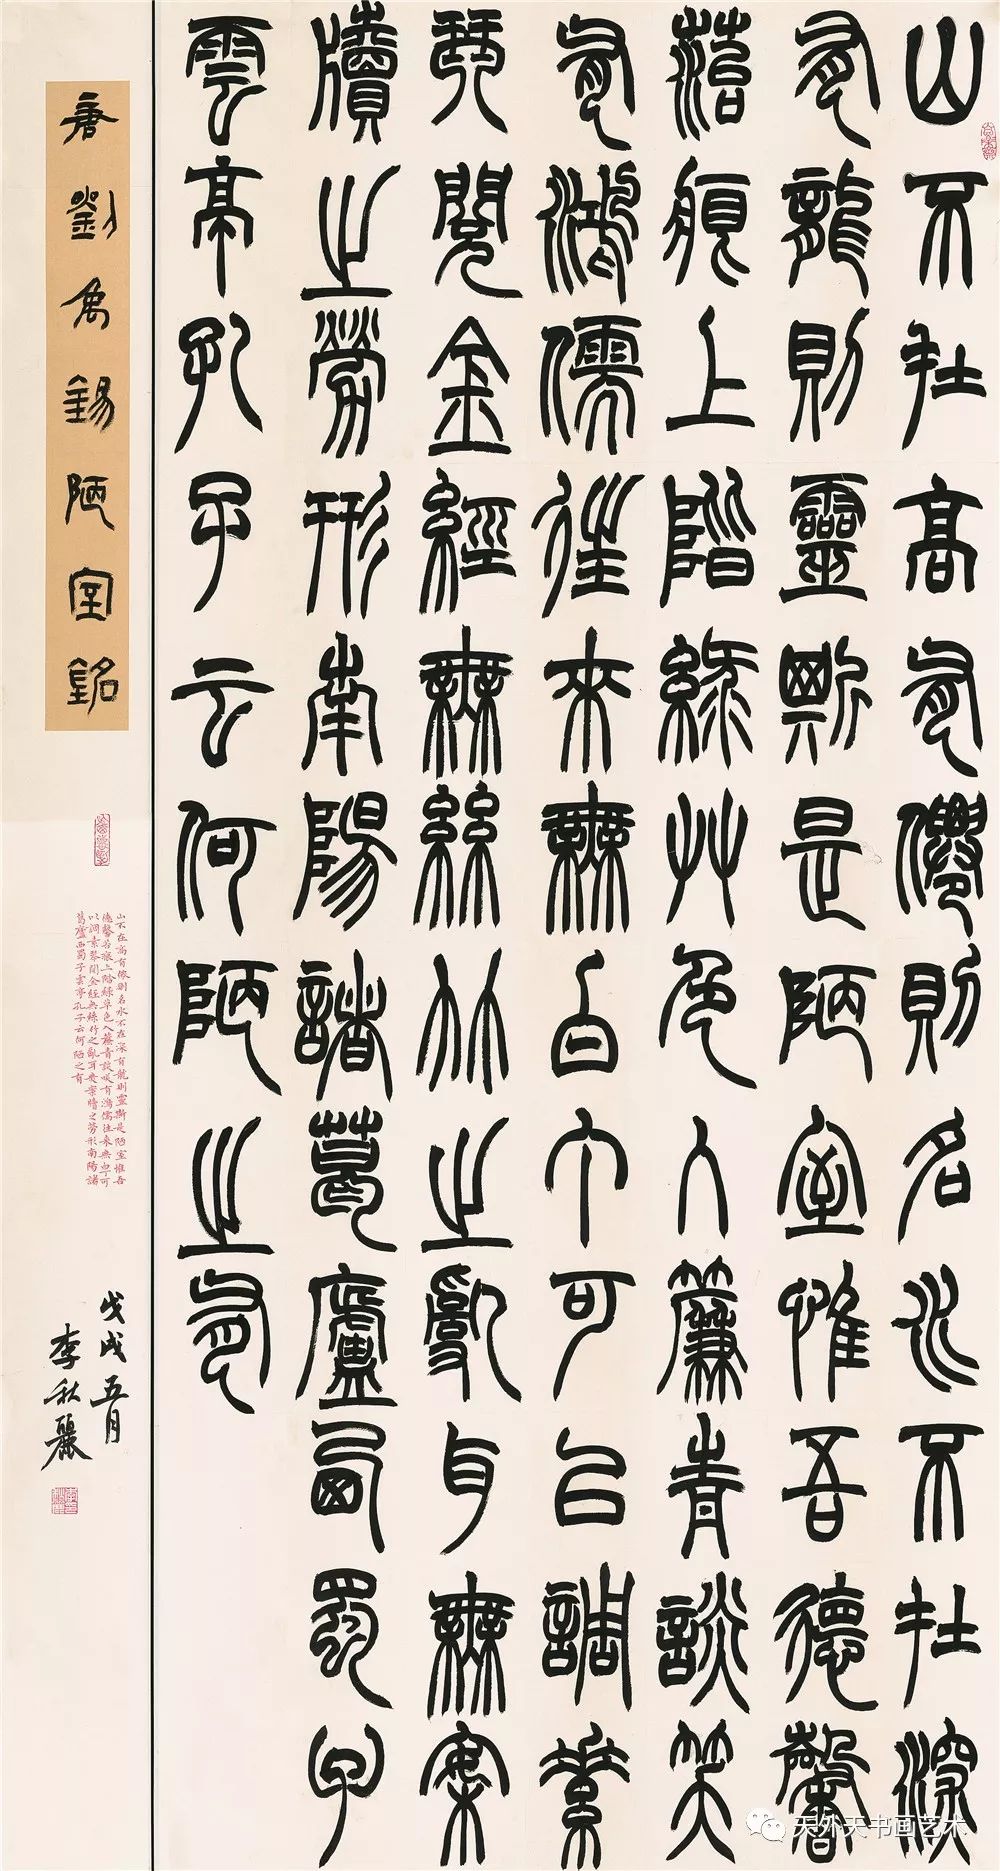 山不在高有僊則名水不在深
有龍則靈斯是陋室惟吾德馨
菭痕上階綠艸色入簾青談笑
有鴻儒往來無白丁可以調素
琴閱金經無絲竹之亂耳無案
牘之勞形南陽諸葛廬西蜀子
雲亭孔子云何陋之有
唐劉禹錫陋室銘
山不在高有僊則名水不在深有龍則靈斯是陋室惟吾
德馨苔痕上階綠草色入簾青談笑有鴻儒往來無白丁可
以調素琴閱金經無絲竹之亂耳無案牘之勞形南陽諸
葛廬西蜀子雲亭孔子云何陋之有
戊戌五月
李秋麗
天外天书画艺术